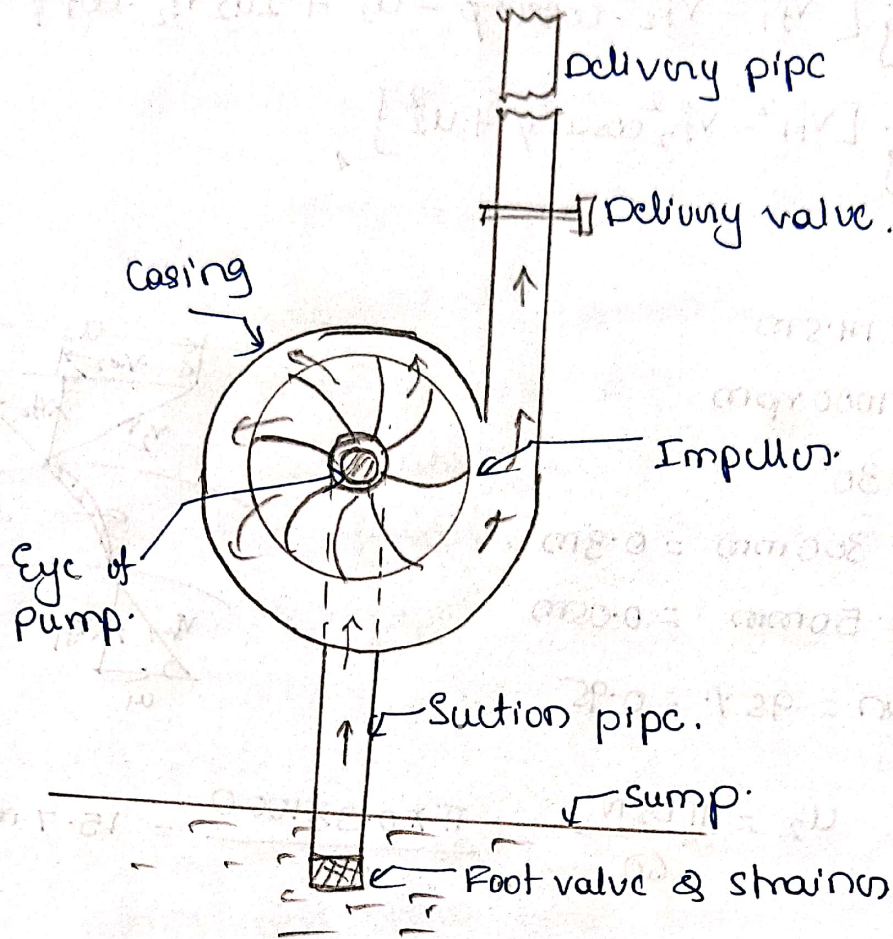 Delivery pipe
Delivery valve.
Casing
Impeller.
Eye of
Pump.
Suction pipe.
Sump.
Foot valve & strainer